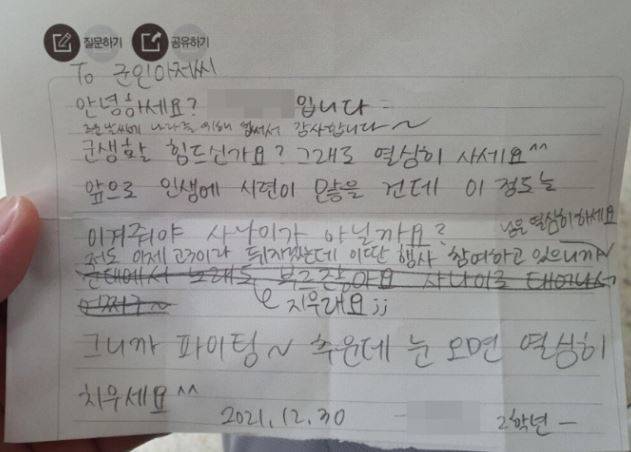 질문하기 공유하기
To 군인아저씨
안녕하세요? 입니다
추운 날씨에 나라를 위해 힘써서 감사합니다~
군생활 힘드신가요? 그래도 열심히 사세요^^
앞으로 인생에 시련이 많을 건데 이 정도는
이겨줘야 사나이가 아닐까요?
저도 이제 고3이라 뒤지겠는데 이딴 행사 참여하고 있으니까~
님은 열심히 하세요
군대에서 노래도 부르잖아요 사나이로 태어나서
어쩌구~
지우래요;;
그니까 파이팅~ 추운데 눈 오면 열심히
치우세요^^
2021.12.30 2학년